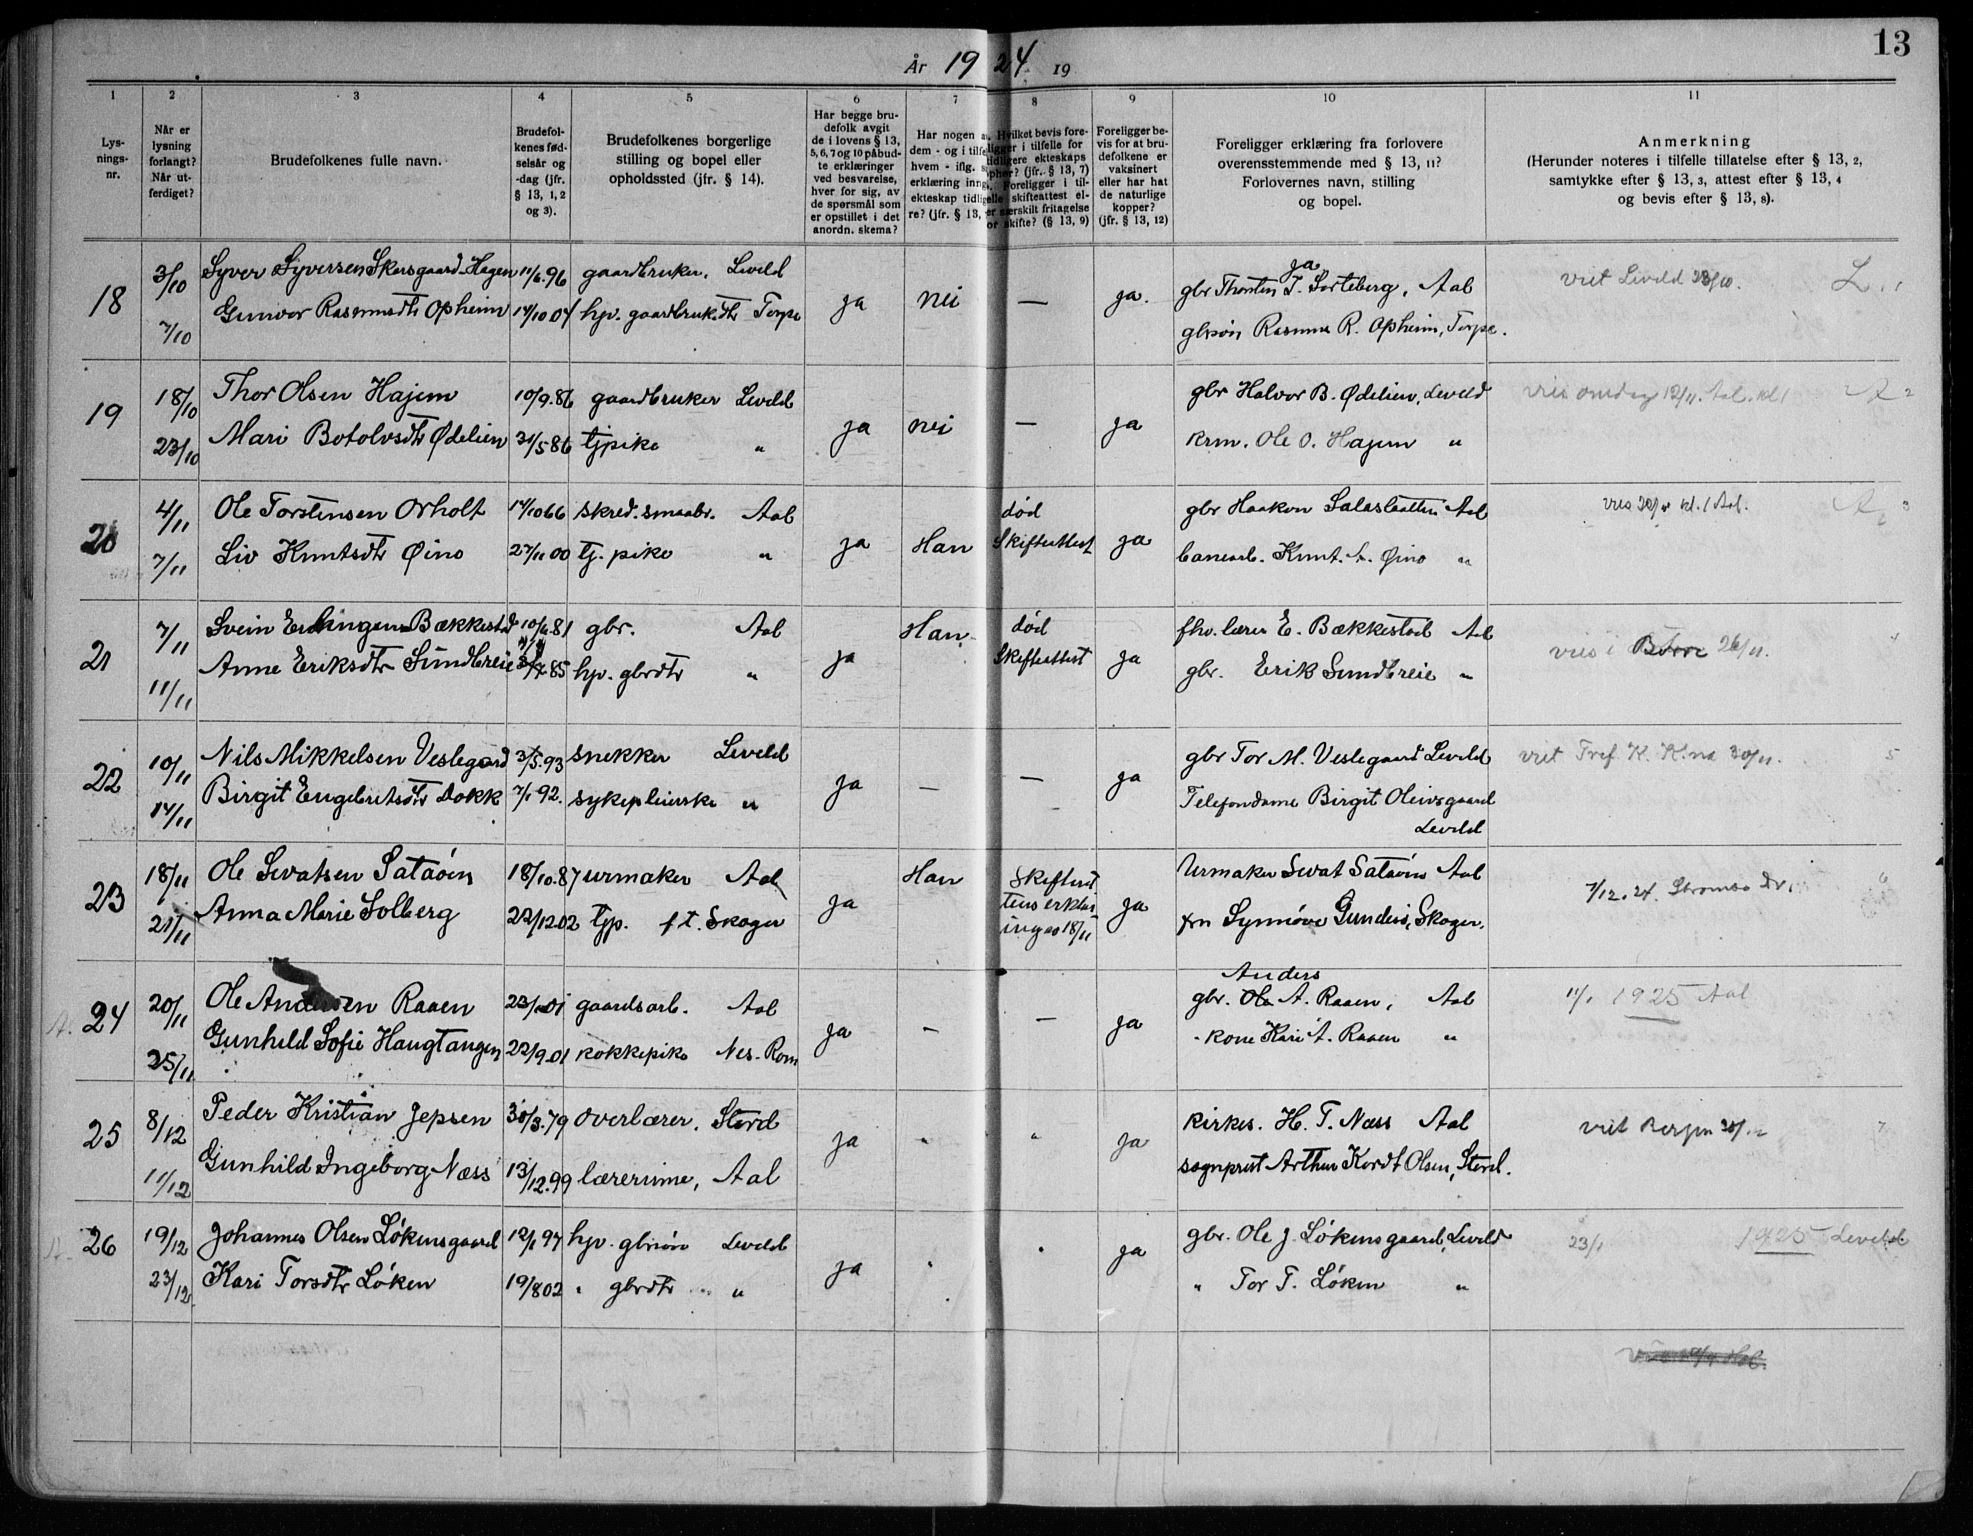 13
År 1924 19
1 2 3 4 5 6 7 8 9 10 11
Lys-
nings-
nr.
Når er
lysning
forlangt?
Når ut-
ferdiget?
Brudefolkenes fulle navn.
Brudefol-
kenes fød-
selsår og
-dag (jfr.
§ 13, 1, 2
og 3).
Brudefolkenes borgerlige
stilling og bopel eller
opholdssted (jfr. § 14).
Har begge bru-
defolk avgit
de i lovens § 13,
5, 6, 7 og 10 påbud-
te erklæringer
ved besvarelse,
hver for sig, av
de spørsmål som
er opstillet i det
anordn. skema?
Har nogen a
dem - og i tilfe
hvem - iflg.
erklæring inng
ekteskap tidlig
re? (jfr. § 13,
Hvilket bevis fore-
ligger i tilfelle for
tidligere ekteskaps
ophør? (jfr. § 13, 7)
Foreligger i til-
elle skifteattest el-
er særskilt fritagelse
or skifte? (§ 13, 9)
Foreligger be-
vis for at bru-
defolkene er
vaksinert
eller har hat
de naturlige
kopper?
(jfr. § 13, 12)
Foreligger erklæring fra forlovere
overensstemmende med § 13, 11?
Forlovernes navn, stilling
og bopel.
Anmerkning
(Herunder noteres i tilfelle tillatelse efter § 13, 2,
samtykke efter § 13, 3, attest efter § 13, 4
og bevis efter § 13, 8).
18 3/10 Syver Syversen Skarsgaard-Hagen 11/6.96 gaardbruker. Leveld ja nei — ja. ja gbr Thorsten T. Sorteberg, Aal viet Leveld 23/10. L. 1
7/10 Gunvor Rasmusdtr Opheim 14/10 04 hjv. gaardbruk.dtr Torpe glrsøn Rasmus R. Opheim, Torpe.
19 18/10 Thor Olsen Hajem 10/9.86 gaardbruker Leveld ja nei — ja gbr Halvor B. Ødelien, Leveld vies onsdag 12/11. Aal. kl 1 2
23/10 Mari Botolvsdtr Ødelien 31/5 86 tjpike " krm. Ole O. Hajem "
20 4/11 Ole Torstensen Orholt 14/10 66 skred. smaabr. Aal ja Han død ja gbr Haakon Salaslaatten Aal vies 20/11 kl. 1 Aal. 3
7/11 Liv Knutsdtr Øino 27/11 00 tj. pike " Skifteattest banearb. Knut. A. Øino "
21 7/11 Svein Erlingsen Bækkestad 10/6.81 gbr. Aal ja Han død ja fhv. lærer E. Bækkestad Aal vies i Borre 26/11. 4
11/11 Anne Eriksdtr Sundbreie 85 hjv. gbrdtr " Skifteattest gbr. Erik Sundbreie "
22 10/11 Nils Mikkelsen Veslegard 3/5.93 snekker Leveld ja — — ja gbr Tor M. Veslegaard Leveld viet Tref. K. K.na 30/11. 5
14/11 Birgit Engebretsdtr Dokk 7/1 92. sykepleierske " Telefondame Birgit Oleivsgaard
Leveld
23 18/11 Ole Sevatsen Sataøen 18/10.87 urmaker Aal ja Han Skifteret ja Urmaker Sevat Sataøen Aal 7/12.24. Strømsø Dr. 6
21/11 Anna Marie Solberg 22/12 02 tjp. f t. Skoger tens erklær
ing av 18/11 frn Synnøve Gundesø, Skoger.
24 20/11 Ole Andersen Raaen 23/1 01 gaardsarb. Aal ja — — ja Anders gbr. Ole A. Raaen, Aal 11/1 1925 Aal
25/11 Gunhild Sofie Haugtangen 22/9.01 kokkepike Nes-Rom kone Kari A. Raaen "
25 8/12 Peder Kristian Jepsen 30/3.79 overlærer. Stord ja " ja kirkes. H. T. Næss Aal viet Bergen 7
11/12 Gunhild Ingeborg Næss 13/12.99 lærerinne, Aal sogneprest Arthur Kordt Olsen, Stord.
26 19/12 Johannes Olsen Løkensgaard 12/1 94 hjv. gbrsøn Leveld ja ja gbr. Ole J. Løkensgaard, Leveld 23/1 1925 Leveld
23/12 Kari Torsdtr Løken 19/8 02 " gbrdtr " " Tor T. Løken "